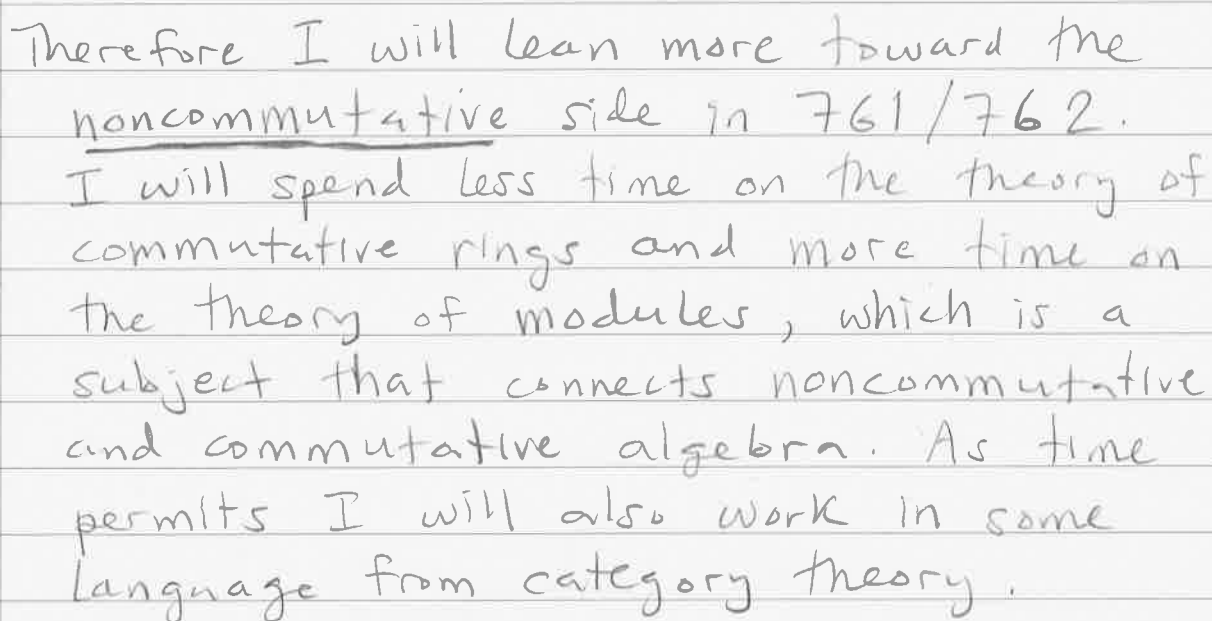 Therefore I will lean more toward the
noncommutative side in 761/762.
I will spend less time on the theory of
commutative rings and more time on
the theory of modules, which is a
subject that connects noncommutative
and commutative algebra. As time
permits I will also work in some
language from category theory.